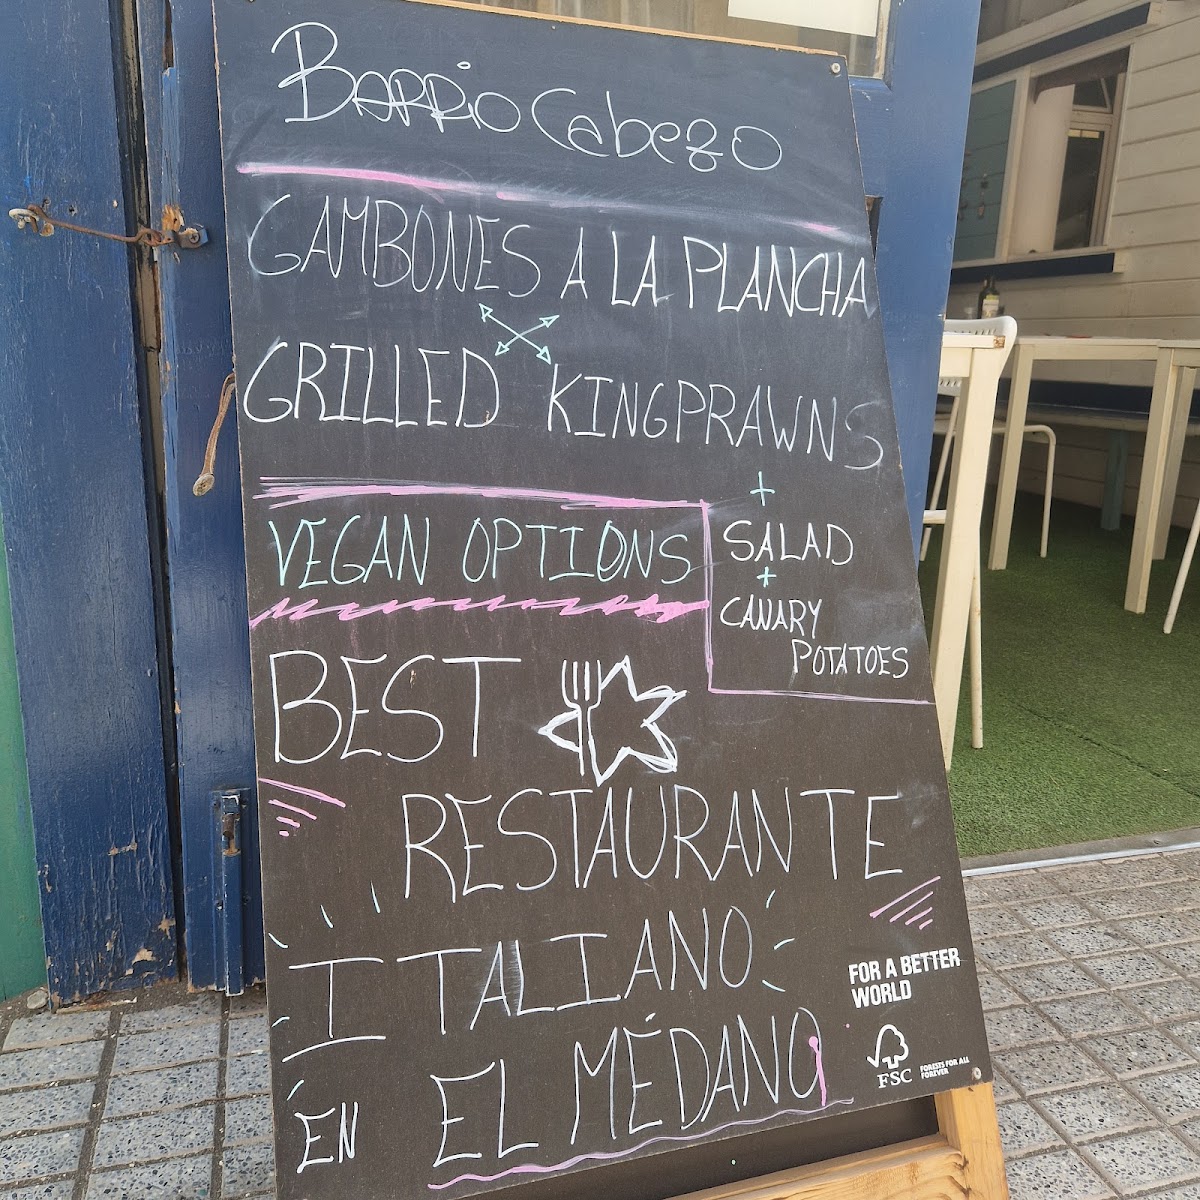 Barrio Cabezo
GAMBONES A LA PLANCHA
GRILLED KINGPRAWNS
+
SALAD
+
CANARY
POTATOES
VEGAN OPTIONS
BEST
RESTAURANTE
ITALIANO
EN EL MÉDANO
FOR A BETTER
WORLD
FSC
FORESTS FOR ALL
FOREVER